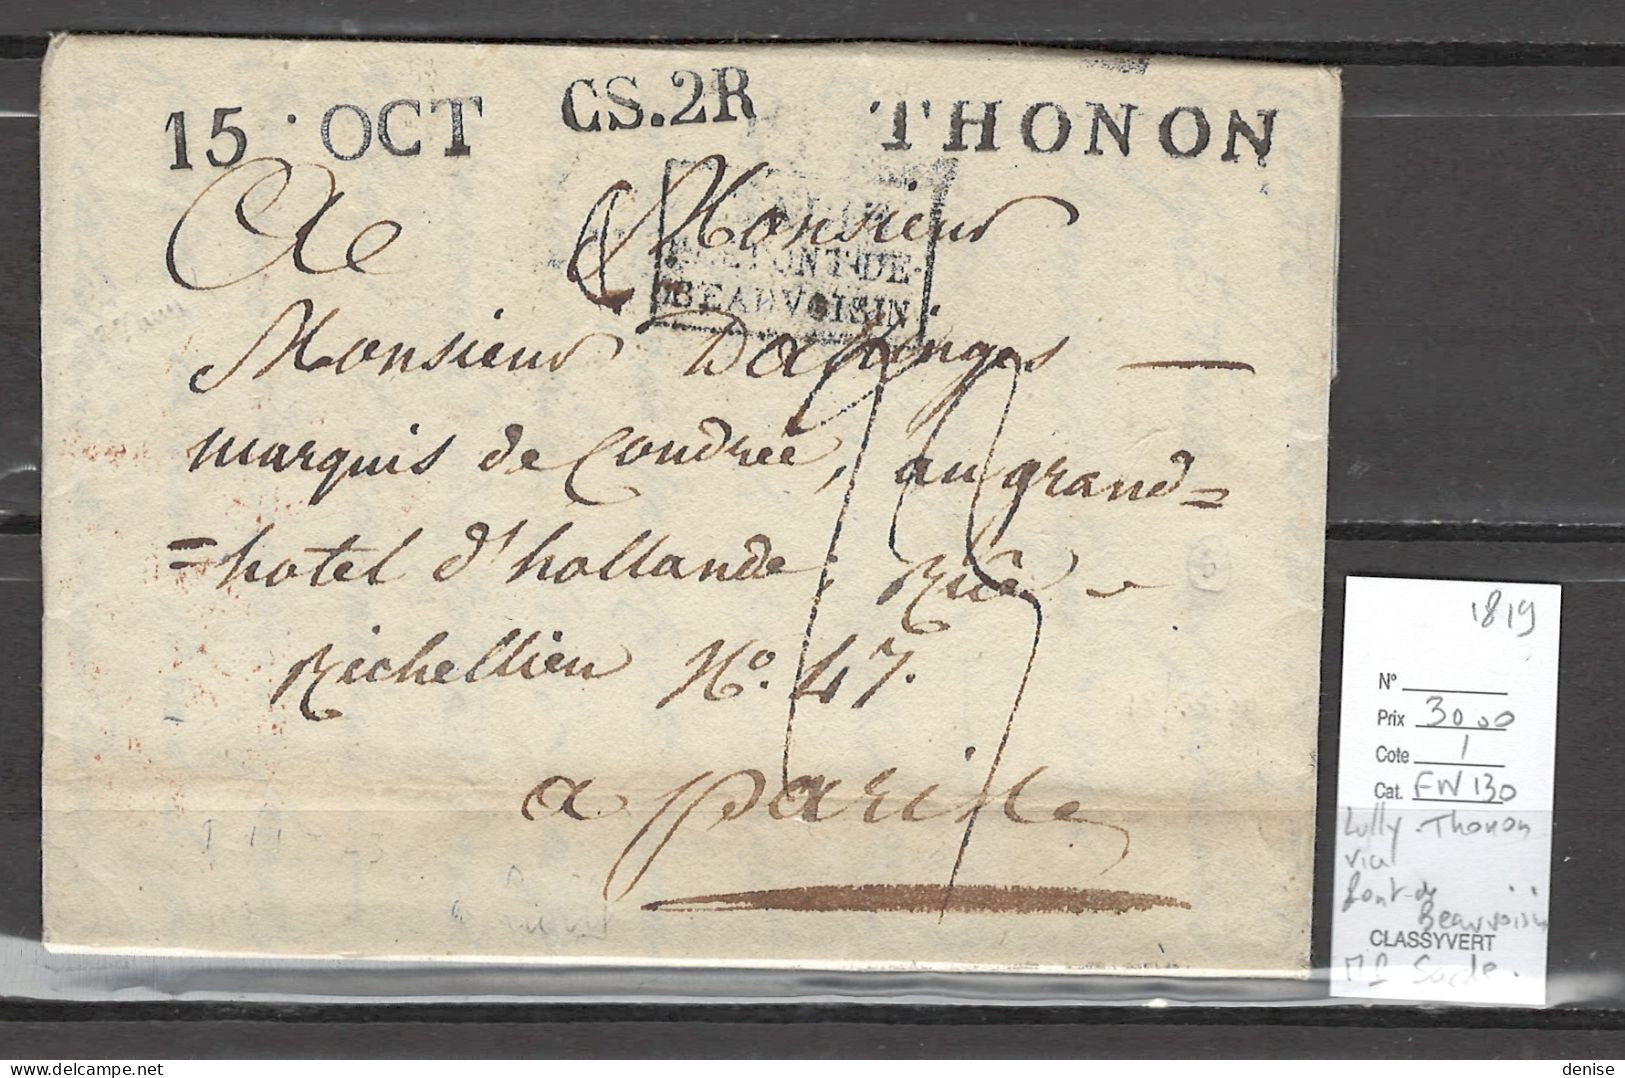 15 OCT
CS.2R
THONON
A Monsieur
PONT-DE-
BEAUVOISIN
Monsieur Dallinges
marquis de Coudrée, au grand=
=hotel d'hollande; Rüe
Richellieu No. 47.
a paris
1819
N°
Prix 30.00
Cote 1
Cat. EW 130
Lully - Thonon
via
Pont-de
Beauvoisin
CLASSYVERT
Sarde.
denise